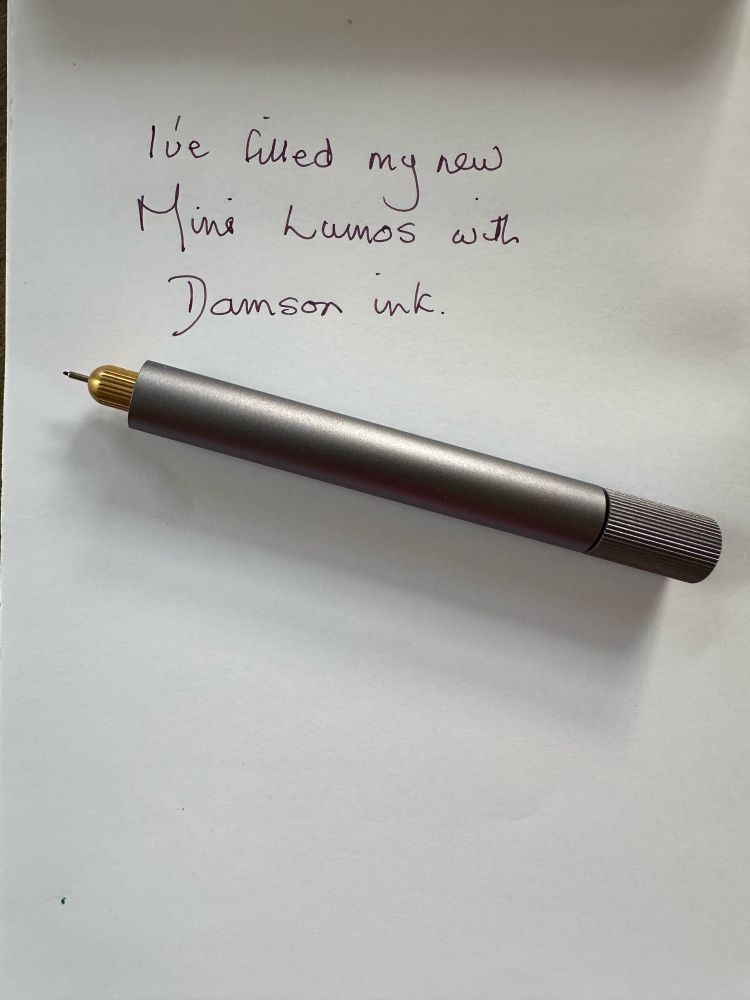 I've filled my new
Mini Lumos with
Damson ink.